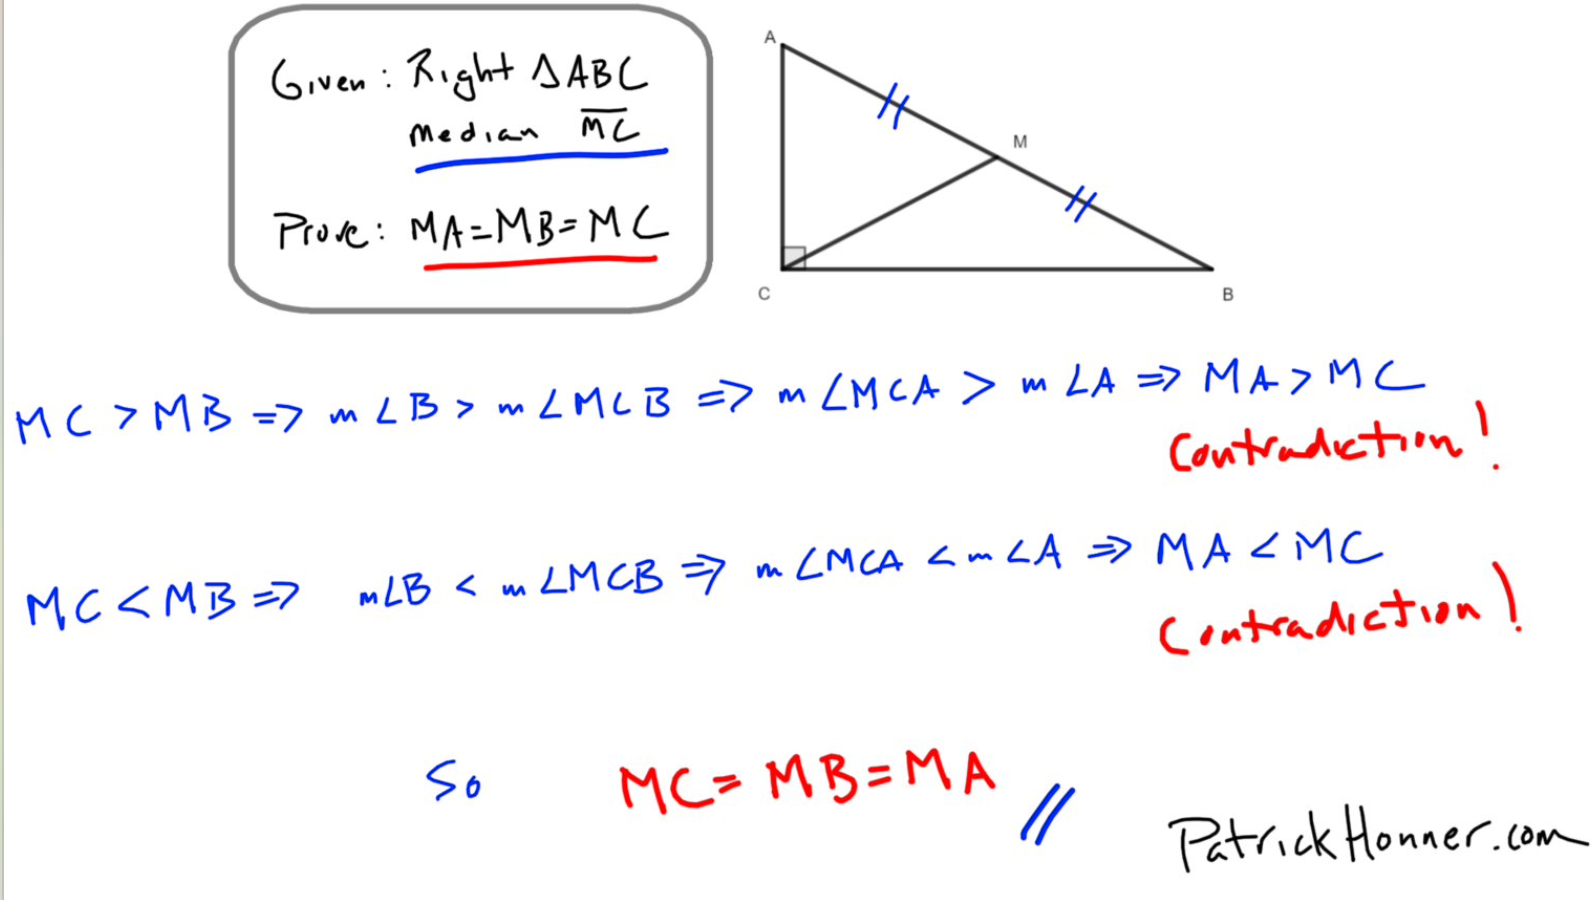 Given: Right △ABC
median M̅C̅
Prove: MA=MB=MC
A
M
C
B
MC > MB => m∠B > m∠MCB => m∠MCA > m∠A => MA > MC
Contradiction!
MC < MB => m∠B < m∠MCB => m∠MCA < m∠A => MA < MC
Contradiction!
So MC = MB = MA //
PatrickHonner.com